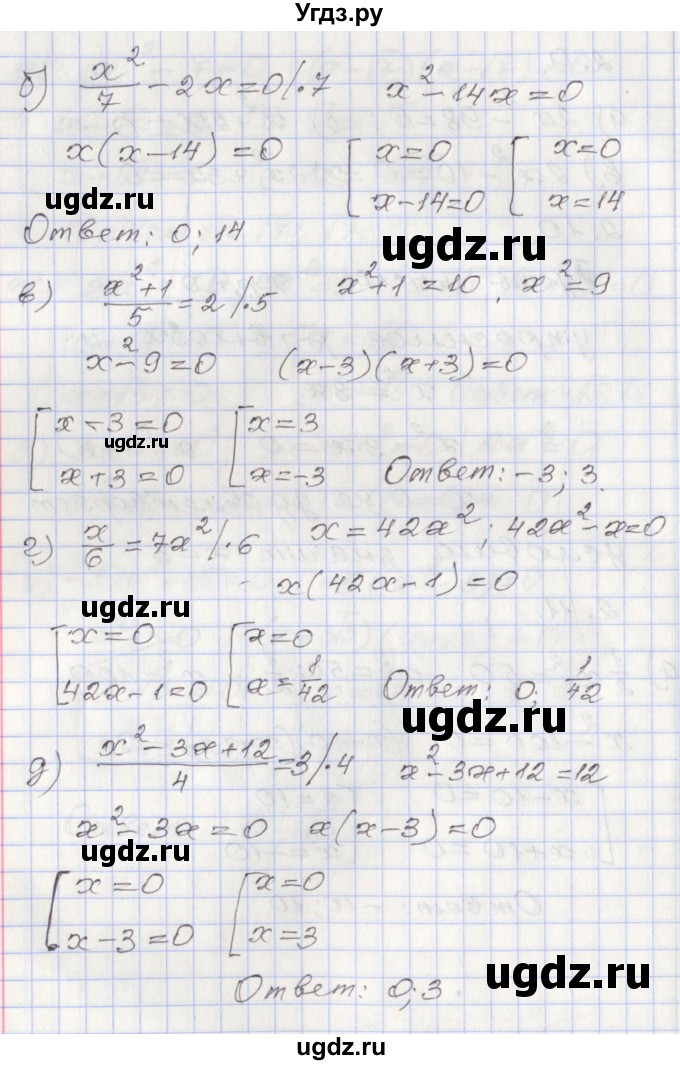 Угдз.ру
б) x²/7 - 2x = 0 |·7 x² - 14x = 0
x(x - 14) = 0 [x = 0 [x = 0
x - 14 = 0 x = 14
ugdz.ru
ugdz.ru
Ответ: 0; 14
в) (x² + 1)/5 = 2 |·5 x² + 1 = 10, x² = 9
x² - 9 = 0 (x - 3)(x + 3) = 0
[x - 3 = 0 [x = 3
ugdz.ru
x + 3 = 0 x = -3 Ответ: -3; 3.
г) x/6 = 7x² |·6 x = 42x²; 42x² - x = 0
x(42x - 1) = 0
ugdz.ru
[x = 0 [x = 0
42x - 1 = 0 x = 1/42 Ответ: 0; 1/42
ugdz.ru
д) (x² - 3x + 12)/4 = 3 |·4 x² - 3x + 12 = 12
x² - 3x = 0 x(x - 3) = 0
ugdz.ru
[x = 0 [x = 0
x - 3 = 0 x = 3
ugdz.ru
Ответ: 0; 3.
ugdz.ru